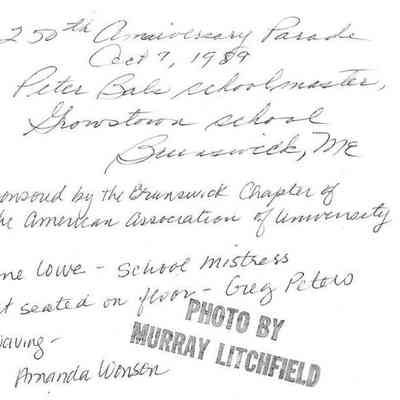 250th Anniversary Parade
Oct 7, 1989
Peter Bals schoolmaster,
Growstown school
Brunswick, ME
onsored by the Brunswick Chapter of
he American Association of University
ne Lowe - School Mistress
t seated on floor - Greg Peters
waving -
Amanda Wonson
PHOTO BY
MURRAY LITCHFIELD